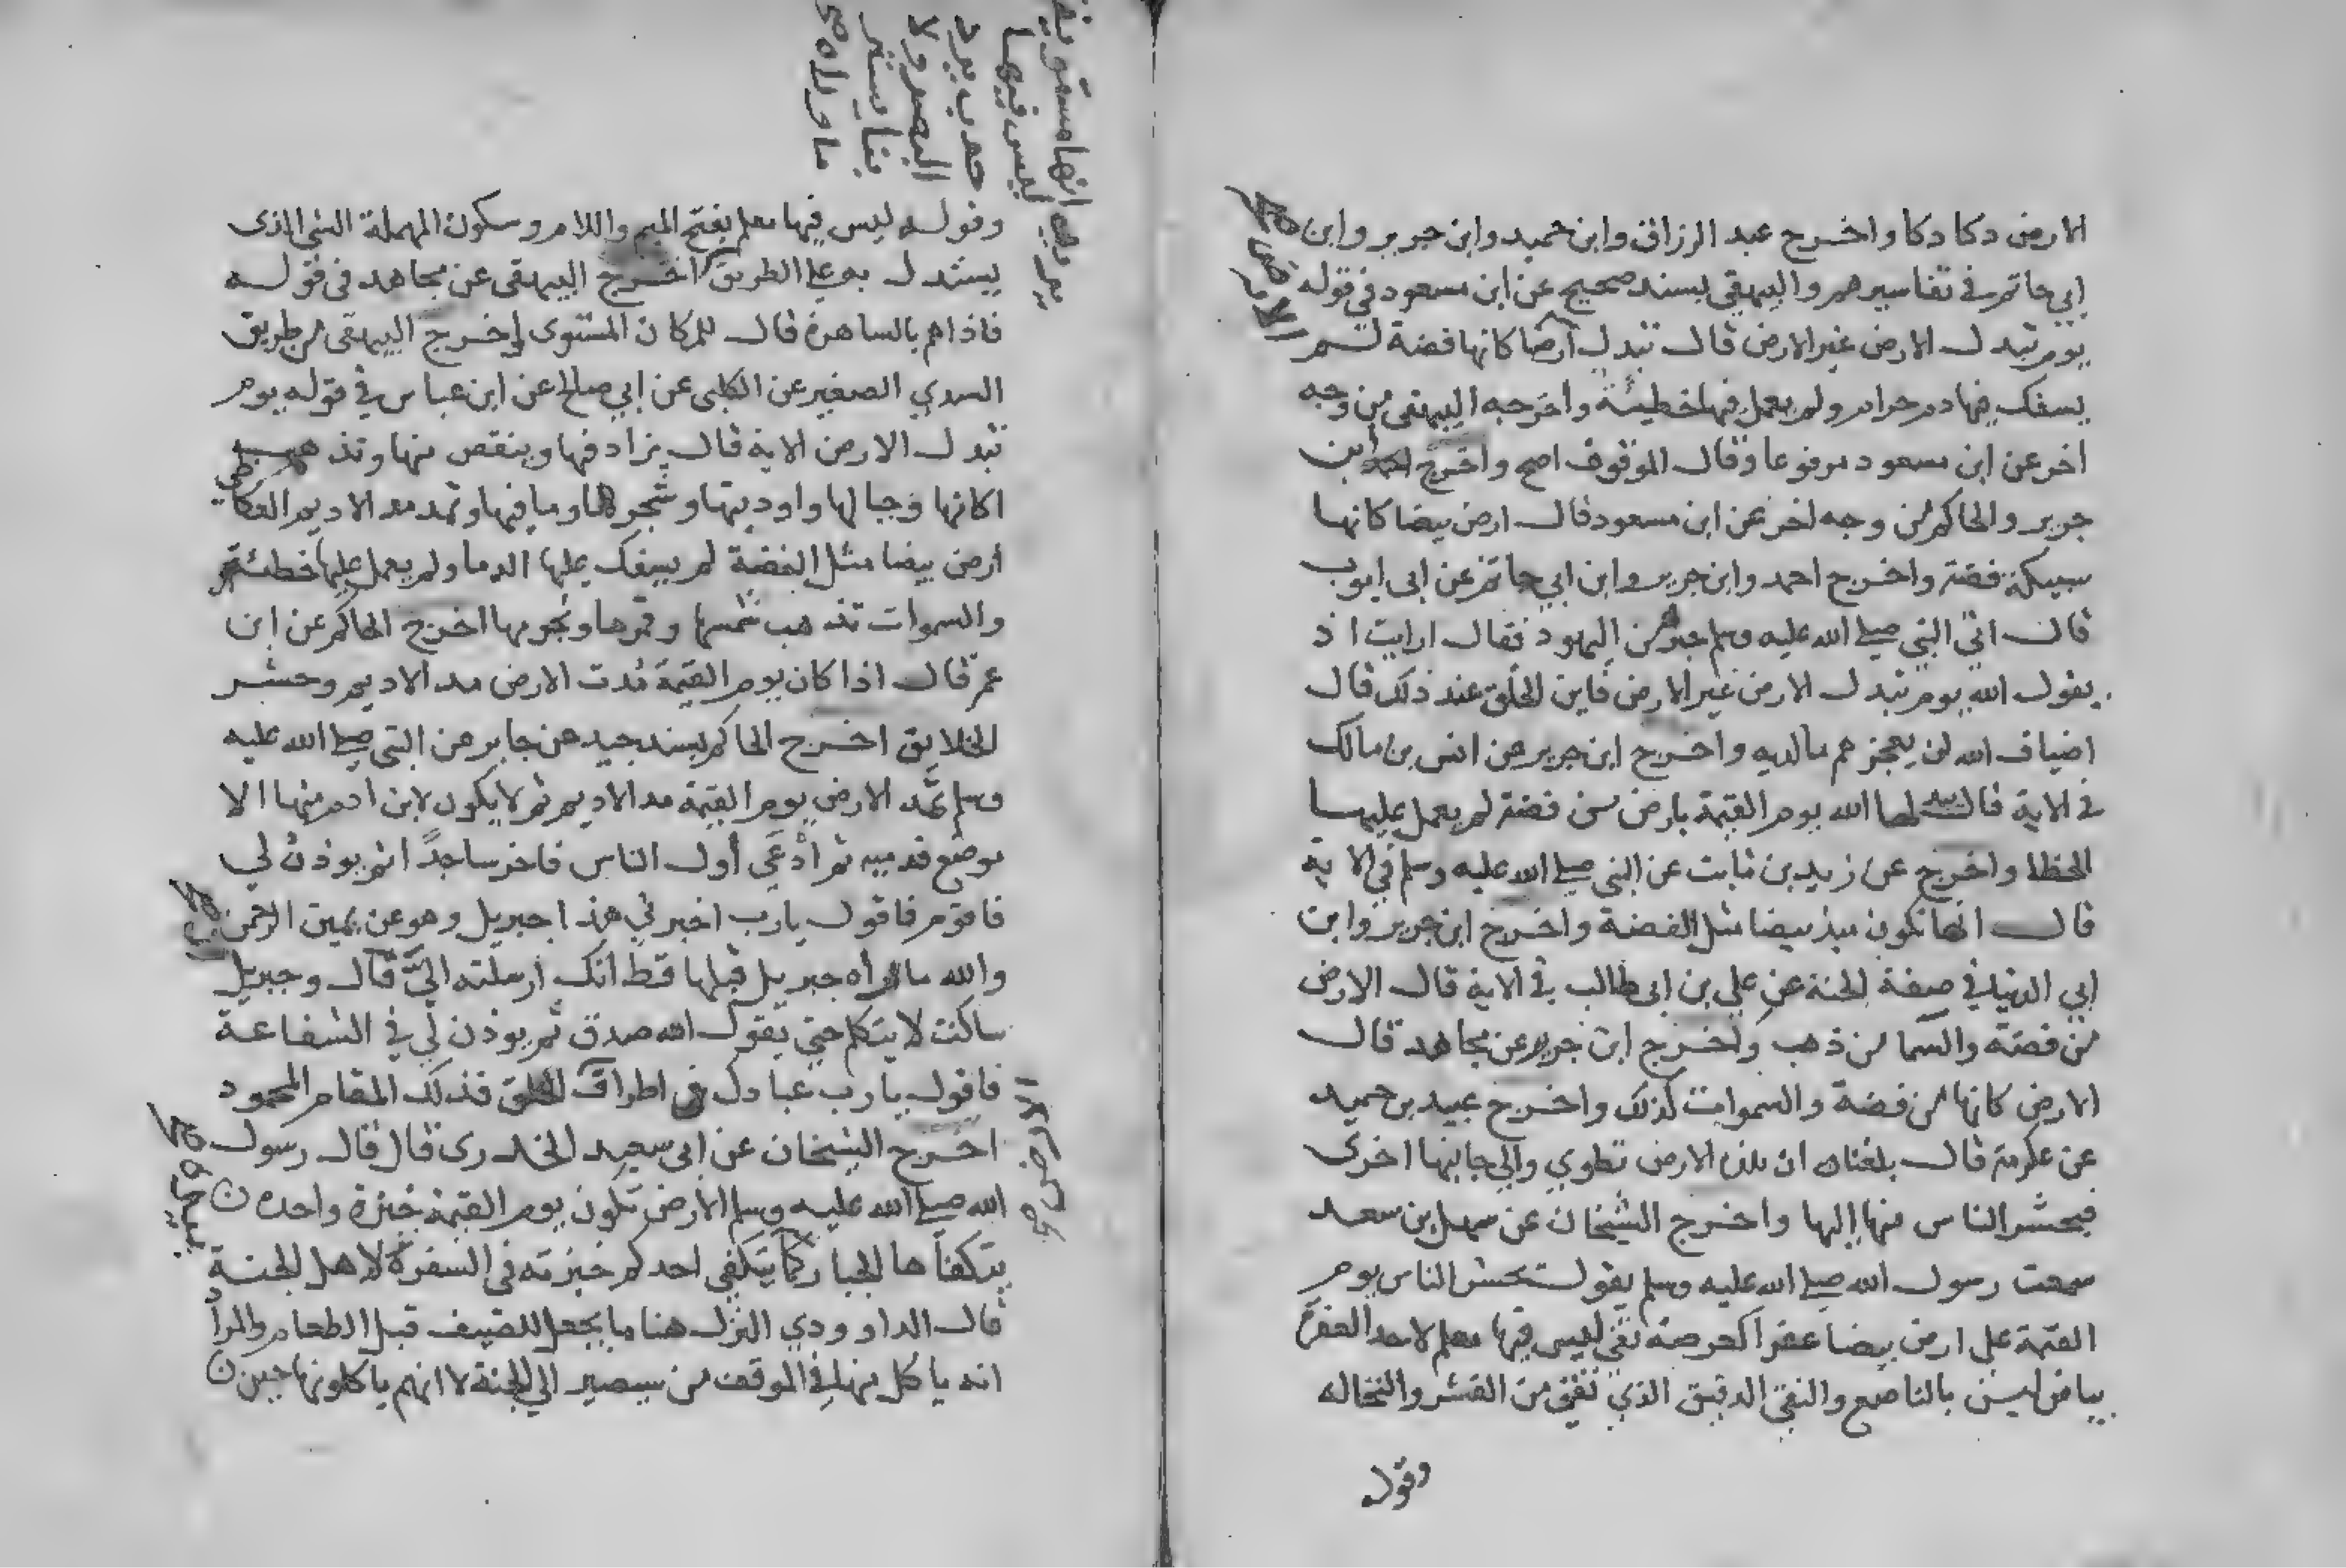 الارض دكا دكا واخرج عبد الرزاق وابن حميد وابن جرير وابن
ابي حاتم في تفاسيرهم والبيهقي بسند صحيح عن ابن مسعود في قوله
يوم تبدل الارض غير الارض قال تبدل ارضا كانها فضة لم
يسفك فيها دم حرام ولم يعمل فيها خطيئة واخرجه البيهقي من وجه
اخر عن ابن مسعود مرفوعا وقال الموقوف اصح واخرج ابن
جرير والحاكم من وجه اخر عن ابن مسعود قال ارض بيضا كانها
سبيكة فضة واخرج احمد وابن جرير وابن ابي حاتم عن ابي ايوب
قال اتي النبي صلي الله عليه وسلم حبر من اليهود فقال ارايت اذ
يقول الله يوم تبدل الارض غير الارض فاين الخلق عند ذلك قال
اضياف الله لن يعجزهم مالديه واخرج ابن جرير عن انس بن مالك
في الاية قال يبدلها الله يوم القيمة بارض من فضة لم يعمل عليها
الخطا واخرج عن زيد بن ثابت عن النبي صلي الله عليه وسلم في الاية
قال انها تكون بيضا مثل الفضة واخرج ابن جرير وابن
ابي الدنيا في صفة الجنة عن علي بن ابي طالب في الاية قال الارض
من فضة والسما من ذهب واخرج ابن جرير عن مجاهد قال
الارض كانها من فضة والسموات كذلك واخرج عبيد بن حميد
عن عكرمة قال بلغنا ان هذه الارض تطوي والي جانبها اخرى
فيحشر الناس منها اليها واخرج الشيخان عن سهل بن سعد
سمعت رسول الله صلي الله عليه وسلم يقول تحشر الناس يوم
القيمة على ارض بيضا عفرا كقرصة نقي ليس فيها معلم لاحد العفرة
بياض ليس بالناصع والنقي الدقيق الذي نقي من القشر والنخاله
وقول
وقوله ليس فيها معلم بفتح الميم واللام وسكون المهملة الشي الذى
يستدل به علي الطريق اخرج البيهقى عن مجاهد فى قوله
فاذاهم بالساهرة قال المكان المستوى واخرج البيهقى من طريق
السدي الصغير عن الكلبى عن ابي صالح عن ابن عباس في قوله يوم
تبدل الارض الاية قال يزاد فيها وينقص منها وتذهب
اكامها وجبالها واوديتها وشجرها وما فيها وتمد مد الاديم العكاظي
ارض بيضا مثل الفضة لم يسفك عليها الدما ولم يعمل عليها خطئة
والسموات تذهب شمسها وقمرها ونجومها اخرج الحاكم عن ابن
عمر قال اذا كان يوم القيمة مدت الارض مد الاديم وحشر
الخلايق اخرج الحاكم بسند جيد عن جابر عن النبي صلي الله عليه
وسلم تمد الارض يوم القيمة مد الاديم ثم لا يكون لابن ادم منها الا
موضع قدميه ثم ادعي اول الناس فاخر ساجدا ثم يوذن لي
فاقوم فاقول يارب اخبرني هذا جبريل وهو عن يمين الرحمن
والله ما راه جبريل قبلها قط انك ارسلته الي قال وجبريل
ساكت لا يتكلم حتي يقول الله صدق ثم يوذن لي في الشفاعة
فاقول يارب عبادك فى اطراف الخلق فذلك المقام المحمود
اخرج الشيخان عن ابى سعيد الخدرى قال قال رسول
الله صلي الله عليه وسلم الارض تكون يوم القيمة خبزة واحدة
يتكفاها الجبار كما يتكفي احدكم خبزته فى السفرة لاهل الجنة
قال الداوودي النزل هنا ما يعجل للضيف قبل الطعام والمراد
انه ياكل منها في الموقف من سيصير الي الجنة لا انهم ياكلونها حين
يريد انها مستوية
ليس فيها
حدب يرد
البصر ولا
بنا يستر
ما وراه